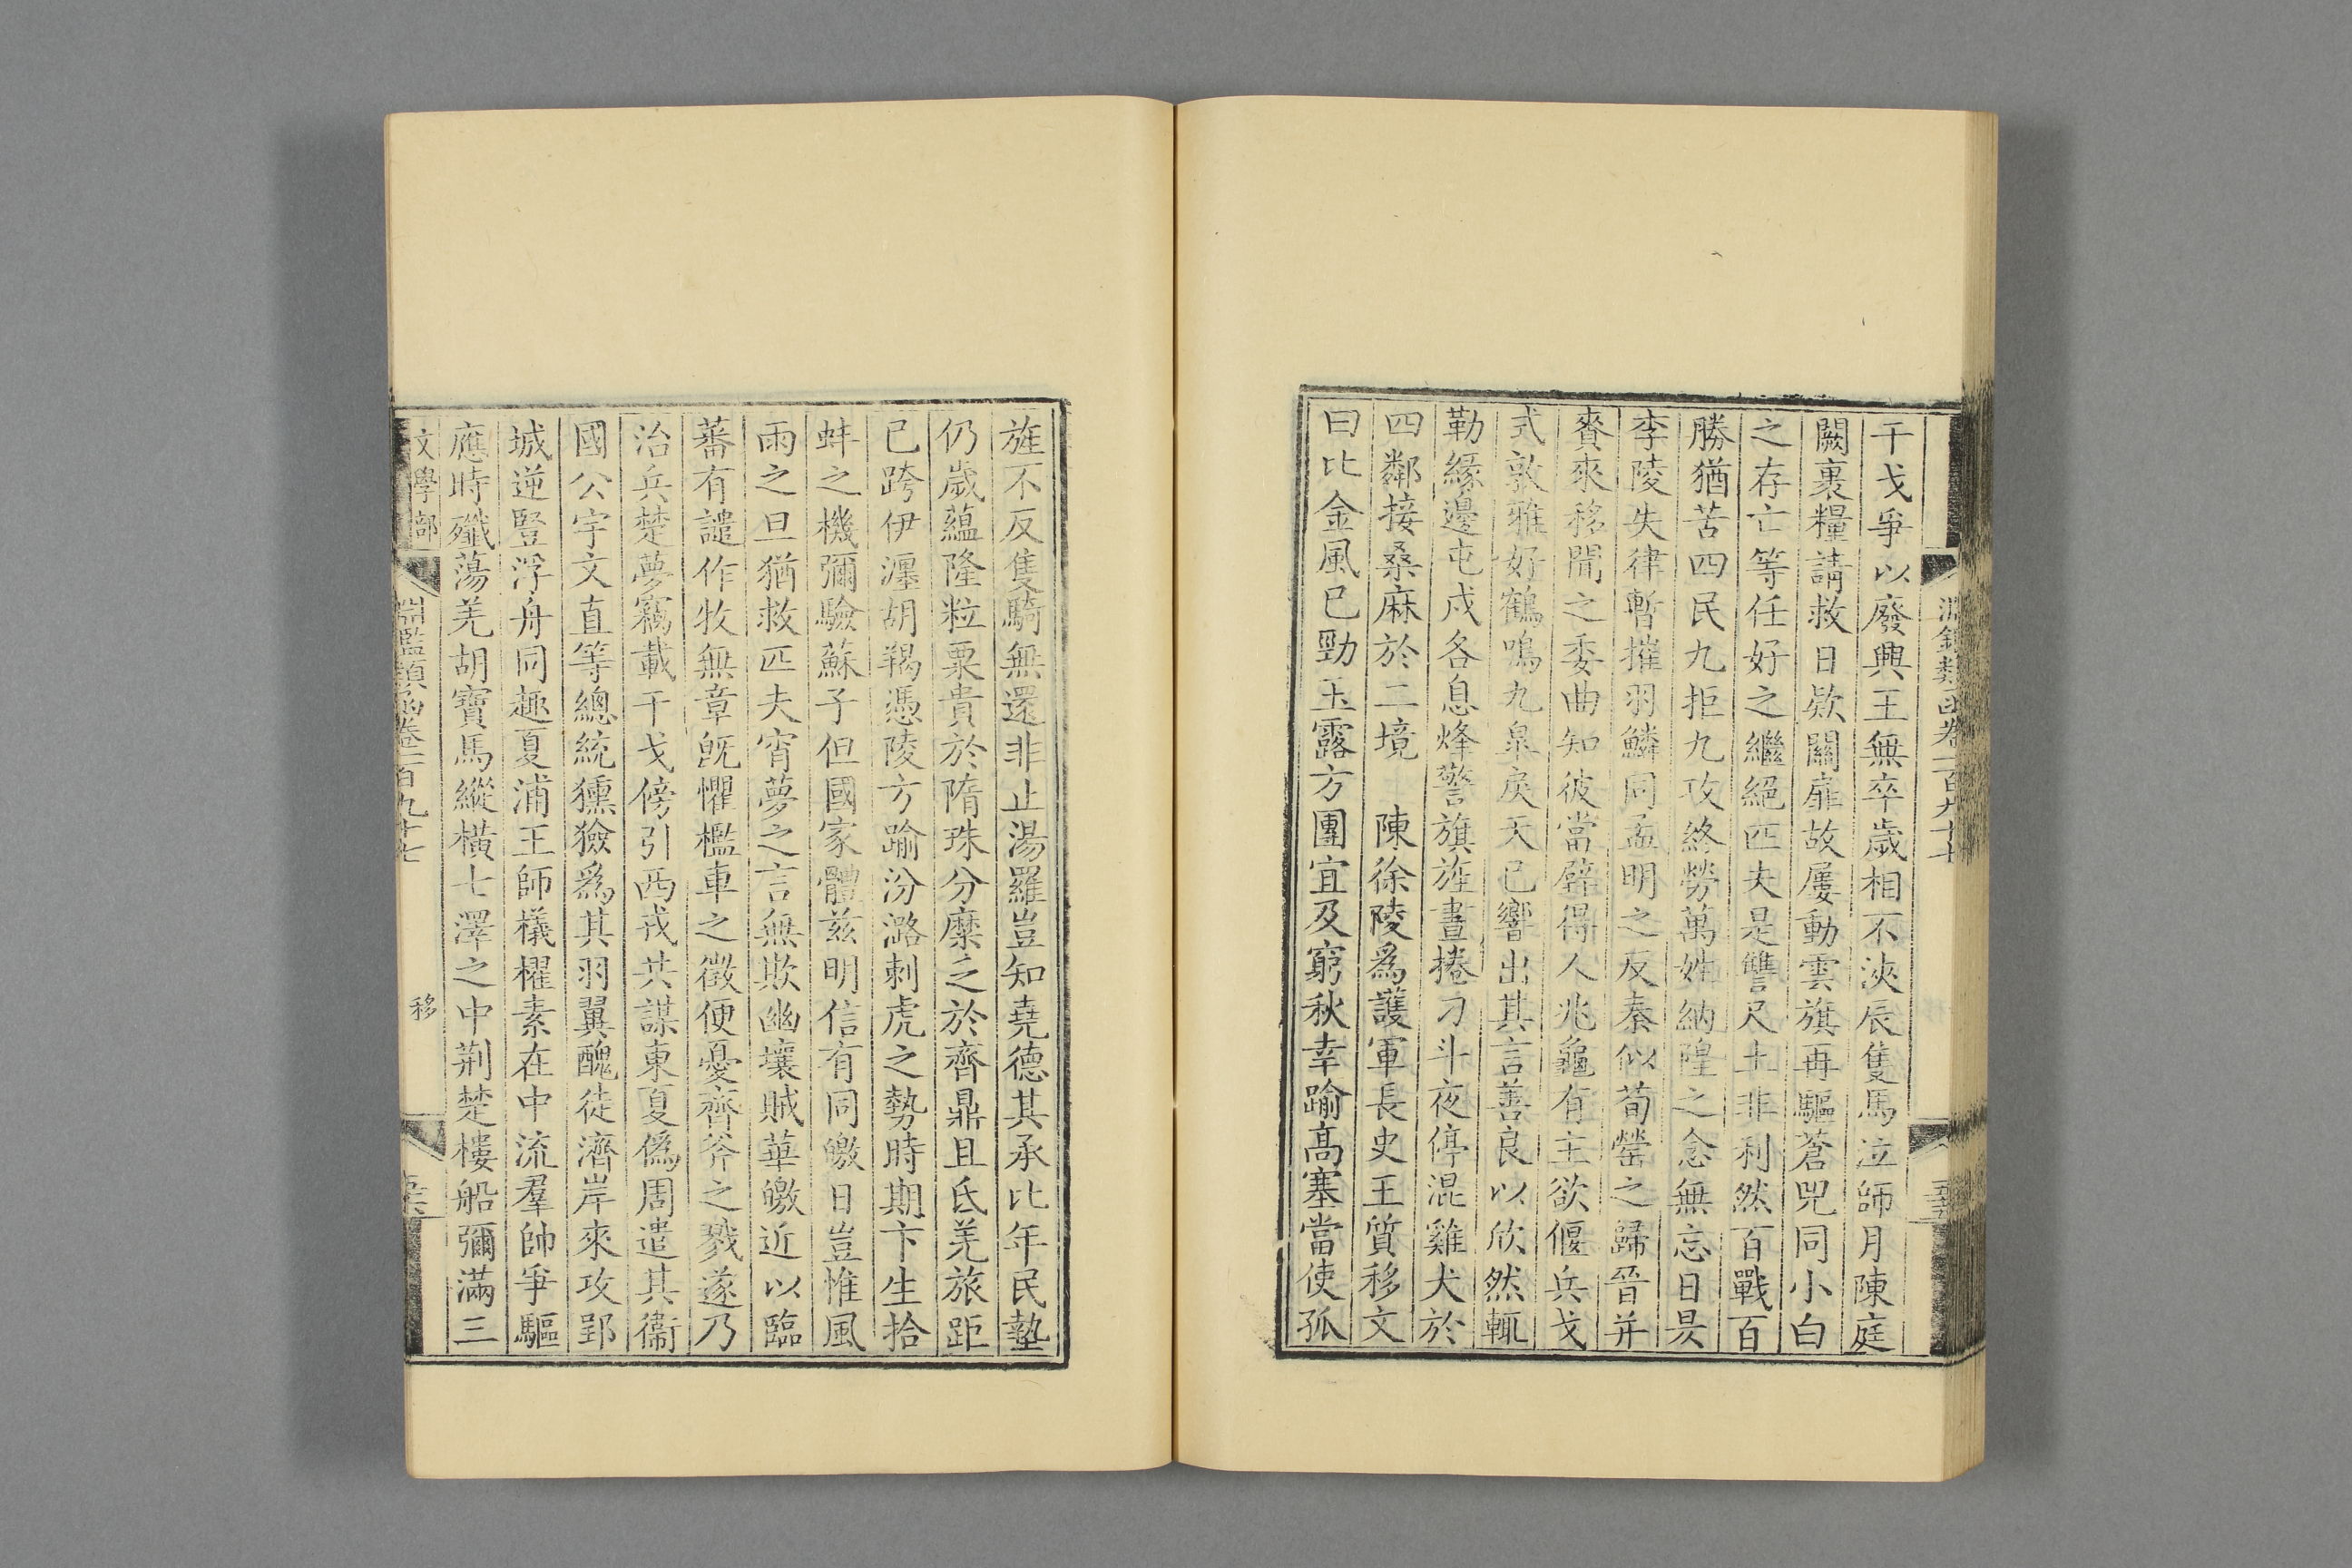 干戈爭以廢興王無卒歲相不浹辰隻馬泣師月陳庭
闕裹糧請救日款關扉故屢動雲旗再驅蒼兕同小白
之存亡等任好之繼絕匹夫是讐尺土非利然百戰百
勝猶苦四民九拒九攻終勞萬姓納隍之念無忘日昃
李陵失律暫摧羽鱗同孟明之反秦似荀罃之歸晉并
賚來移聞之委曲知彼當璧得人兆龜有主欲偃兵戈
式敦雅好鶴鳴九臯戾天已響出其言善良以欣然輒
勒緣邊屯戍各息烽警旗旌晝捲刁斗夜停混雞犬於
四鄰接桑麻於二境　陳徐陵爲護軍長史王質移文
曰比金風已勁玉露方團宜及窮秋幸踰高塞當使孤
旌不反隻騎無還非止湯羅豈知堯德其承比年民墊
仍歲蘊隆粒粟貴於隋珠分糜乏於齊鼎且氐羌旅距
已跨伊瀍胡羯憑陵方踰汾潞刺虎之勢時期卞生拾
蚌之機彌驗蘇子但國家體茲明信有同皦日豈惟風
雨之旦猶救匹夫宵夢之言無欺幽壤賊華皦近以臨
蕃有譴作牧無章旣懼檻車之徵便憂齊斧之戮遂乃
治兵楚夢竊載干戈傍引西戎共謀東夏僞周遣其衞
國公宇文直等總統獯獫爲其羽翼醜徒濟岸來攻郢
城逆豎浮舟同趣夏浦王師檥櫂素在中流羣帥爭驅
應時殲蕩羌胡寶馬縱橫七澤之中荆楚樓船彌滿三
文學部　淵鑑類函卷一百九十七　移